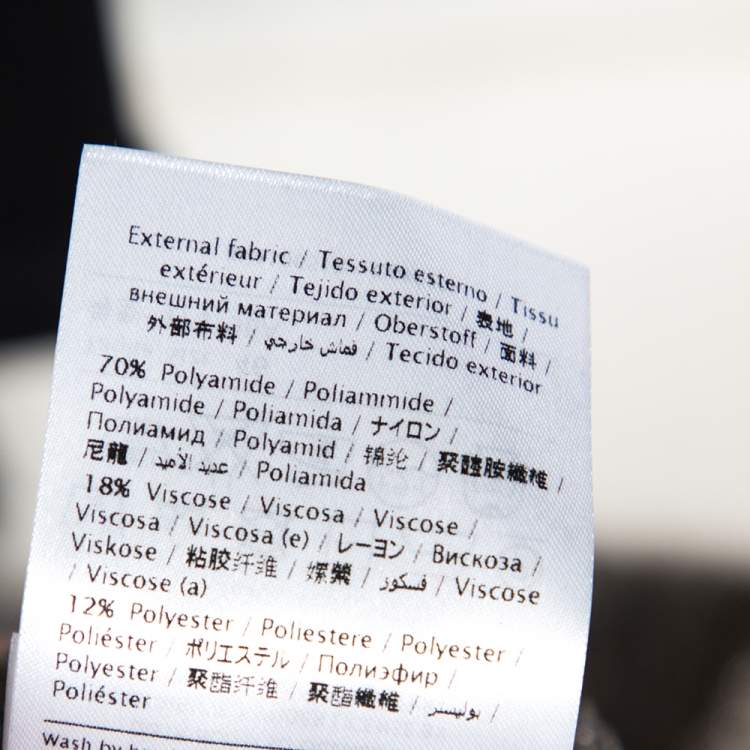 External fabric / Tessuto esterno / Tissu
extérieur / Tejido exterior / 表地 /
внешний материал / Oberstoff / 面料 /
外部布料 / قماش خارجي / Tecido exterior
70% Polyamide / Poliammide /
Polyamide / Poliamida / ナイロン /
Полиамид / Polyamid / 锦纶 / 聚醯胺纖維 /
尼龍 / عديد الأميد / Poliamida
18% Viscose / Viscosa / Viscose /
Viscosa / Viscosa (e) / レーヨン / Вискоза /
Viskose / 粘胶纤维 / 嫘縈 / فسكوز / Viscose
/ Viscose (a)
12% Polyester / Poliestere / Polyester /
Poliéster / ポリエステル / Полиэфир /
Polyester / 聚酯纤维 / 聚酯纖維 / بوليستر /
Poliéster
Wash by